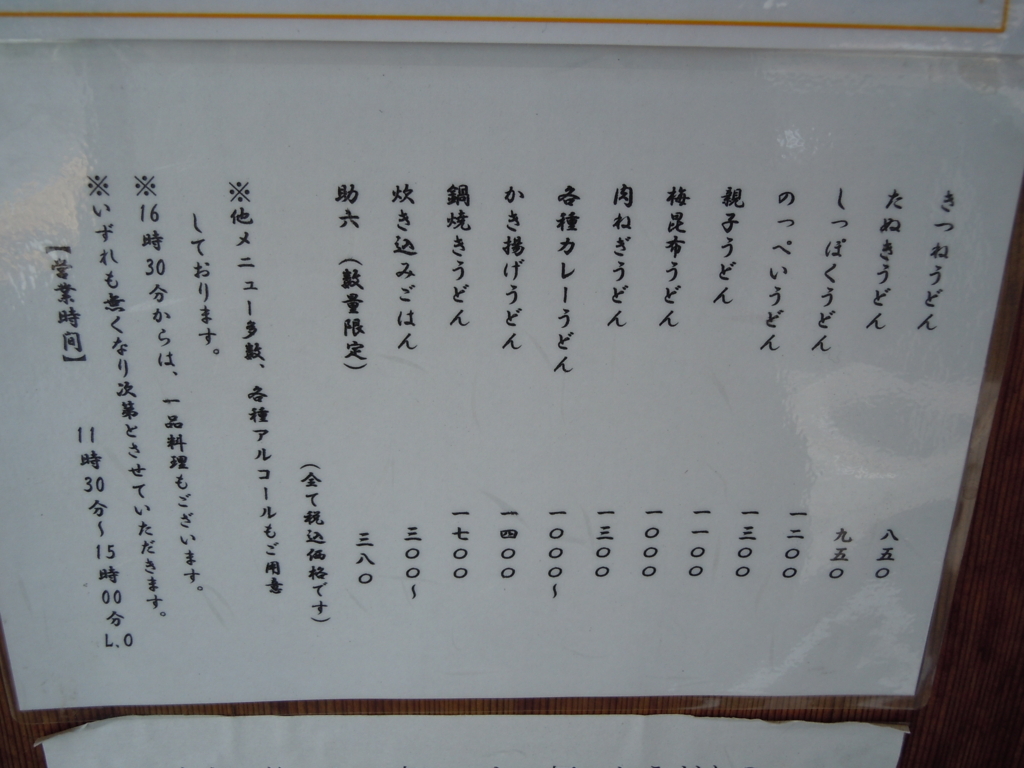 きつねうどん 八五〇
たぬきうどん 九五〇
しっぽくうどん 一二〇〇
のっぺいうどん 一三〇〇
親子うどん 一一〇〇
梅昆布うどん 一〇〇〇
肉ねぎうどん 一三〇〇
各種カレーうどん 一〇〇〇～
かき揚げうどん 一四〇〇
鍋焼きうどん 一七〇〇
炊き込みごはん 三〇〇～
助六（数量限定） 三八〇
（全て税込価格です）
※他メニュー多数、各種アルコールもご用意
しております。
※16時30分からは、一品料理もございます。
※いずれも無くなり次第とさせていただきます。
【営業時間】 11時30分～15時00分L.O